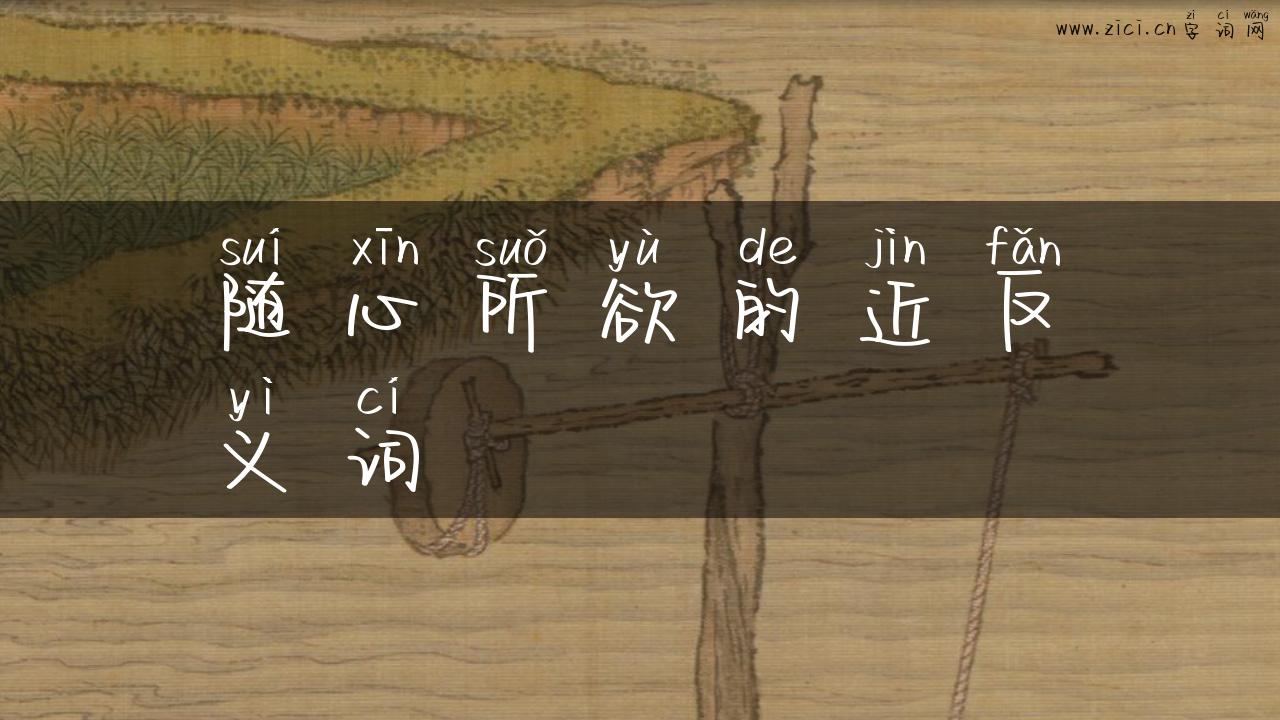 zì cí wǎng
www.zici.cn 字词网
suí xīn suǒ yù de jìn fǎn
随心所欲的近反
yì cí
义词